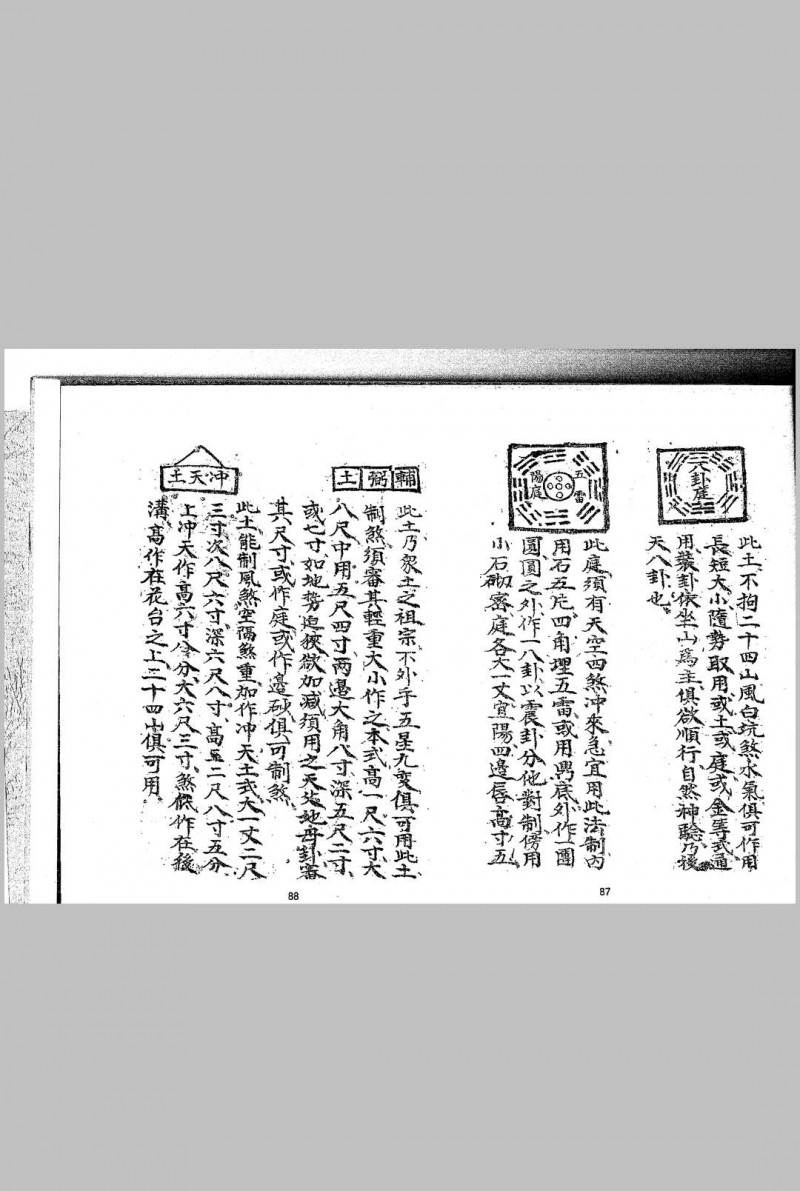 八卦庭
此土不拘二十四山風白坑煞水氣俱可作用
長短大小隨勢取用或土或庭或金等式通
用裝卦依坐山為主俱欲順行自然神驗乃後
天八卦也
五雷
陽庭
此庭須有天空四煞冲來急宜用此法制內
用石五片四角埋五雷或用磚底外作一圈
圓圓之外作一八卦以震卦分他對制傍用
小石砌密庭各大一丈宜陽四邊唇高寸五
87
輔弼土
此土乃眾土之祖宗不外乎五星九變俱可用此土
制煞須審其輕重大小作之本式高一尺六寸大
八尺中用五尺四寸兩邊大角八寸深五尺二寸
或七寸如地勢迫狹欲加減須用之天父地母卦審
其尺寸或作庭或作邊砂俱可制煞
冲天土
此土能制風煞空隔煞重加作冲天土式大一丈二尺
三寸次八尺六寸深六尺八寸高至二尺八寸五分
上冲天作高六寸分大六尺三寸煞低作在後
溝高作在花台之上二十四山俱可用
88